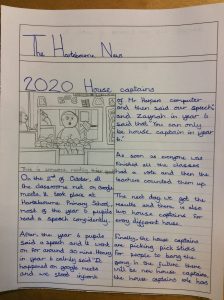 The Hartsbourne News
2020 House captains
This is someone reading their speech
On the 2nd of October all
the classrooms met on google
meets. It took place at
Hartsbourne Primary School,
most of the year 6 pupils
read a speech consistently.
After, the year 6 pupils
said a speech and it went
on for around 30 mins. Henry
in year 6 calmly said it
happened on google meets
and we stood infront
of Mr Harpers computer
and then said our speech
and Zaynah in year 6
said that "You can only
be house captain in year
6."
As soon as everyone was
finished all the classes
had a vote and then the
teachers counted them up.
The next day we got the
results and there is also
two house captains for
every different house.
Finally, the house captains
are picking pick sticks
for people to bang the
gong in the future there
will be new house captains
the house captains role has